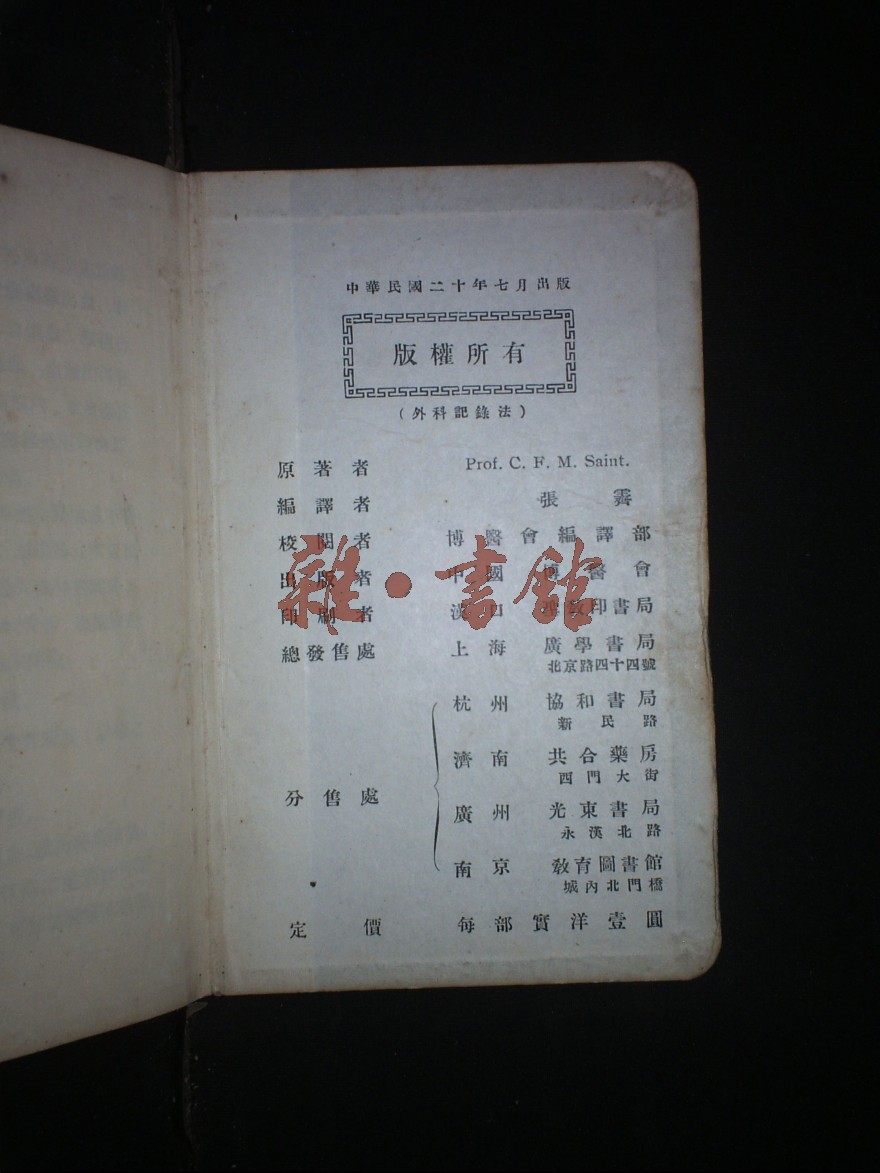 中華民國二十年七月出版
版權所有
(外科記錄法)
原著者 Prof. C. F. M. Saint.
編譯者 張霽
校閱者 博醫會編譯部
出版者 中國博醫會
印刷者 漢口 印書局
總發售處 上海 廣學書局
北京路四十四號
分售處
杭州 協和書局
新民路
濟南 共合藥房
西門大街
廣州 光東書局
永漢北路
南京 教育圖書館
城內北門橋
定價 每部實洋壹圓
雜·書館